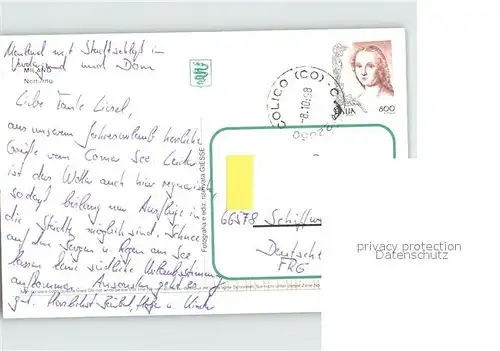 Mailand mit Stadtschloß im
Vordergrund und Dom
MILANO
Notturno
Liebe Tante Liesel,
aus unserem Jahresurlaub herzliche
Grüße vom Comer See. Leider
ist das Wetter auch hier regnerisch,
so daß bislang nur Ausflüge in
die Städte möglich sind. Schnee
auf den Bergen u. Regen am See
lassen keine südliche Urlaubsstimmung
aufkommen. Ansonsten geht es
gut. Herzlichst u. Kinder
Fotografia e ediz. riservata GIESSE
COLICO (CO)
-8.10.98
ITALIA 800
66578 Schiffw
Deutschl
FRG
privacy protection
Datenschutz